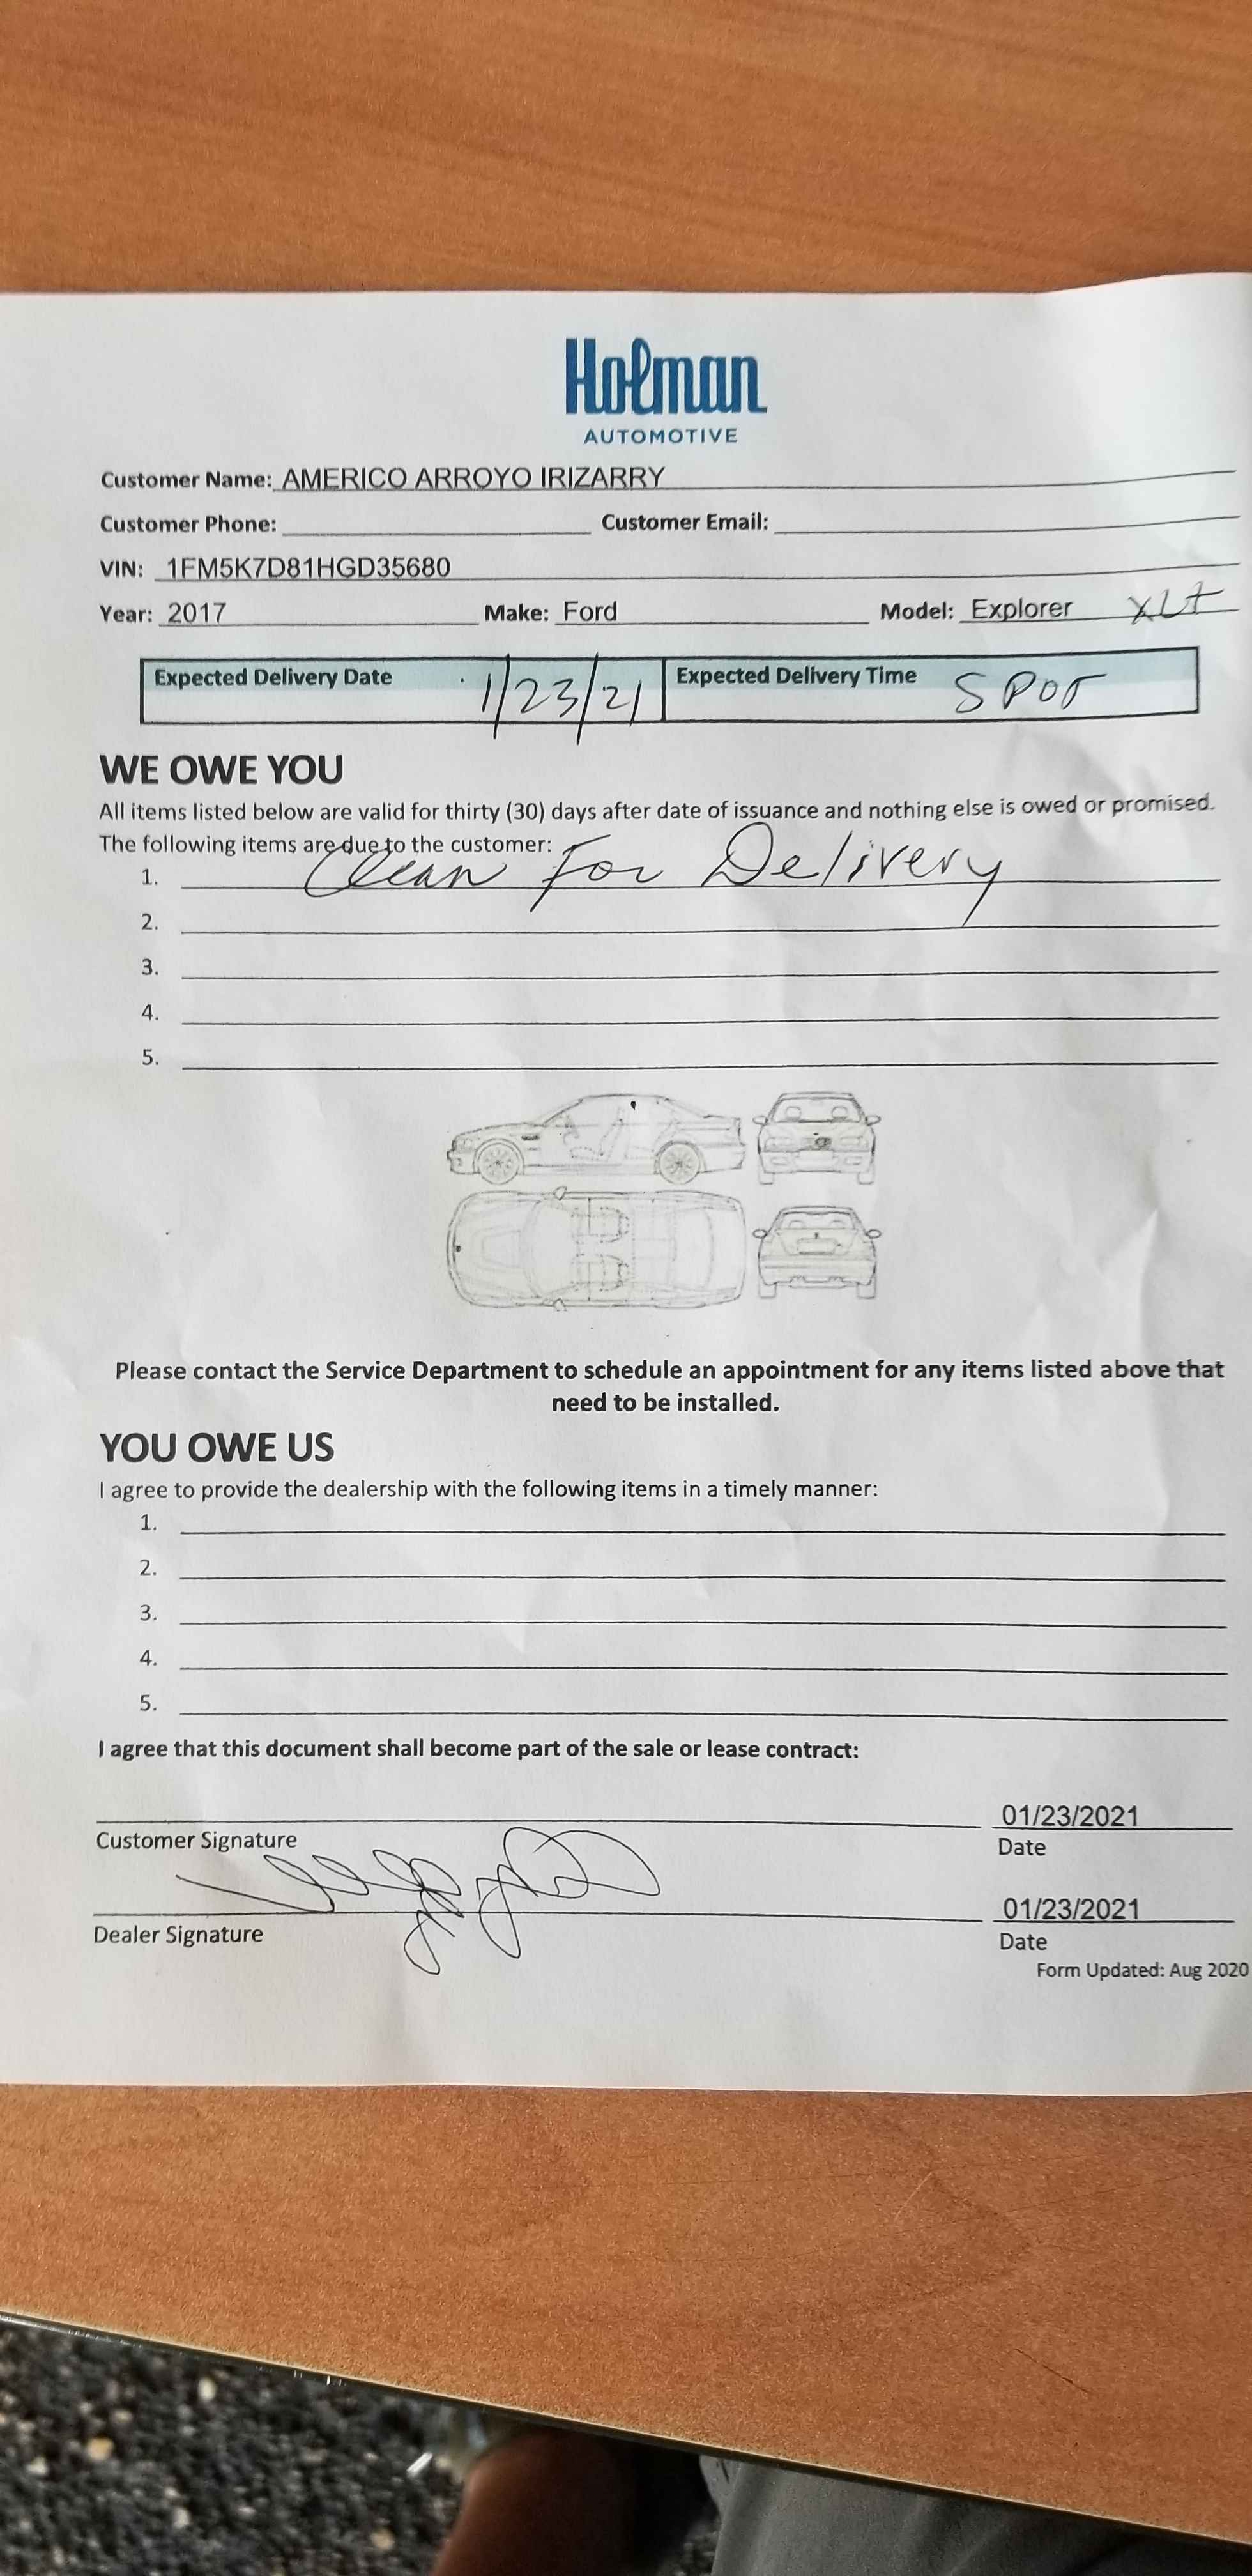 Holman
AUTOMOTIVE
Customer Name: AMERICO ARROYO IRIZARRY
Customer Phone: Customer Email:
VIN: 1FM5K7D81HGD35680
Year: 2017 Make: Ford Model: Explorer XLT
Expected Delivery Date 1/23/21 Expected Delivery Time SPOT
WE OWE YOU
All items listed below are valid for thirty (30) days after date of issuance and nothing else is owed or promised.
The following items are due to the customer:
1. Clean For Delivery
2.
3.
4.
5.
Please contact the Service Department to schedule an appointment for any items listed above that
need to be installed.
YOU OWE US
I agree to provide the dealership with the following items in a timely manner:
1.
2.
3.
4.
5.
I agree that this document shall become part of the sale or lease contract:
01/23/2021
Customer Signature Date
01/23/2021
Dealer Signature Date
Form Updated: Aug 2020